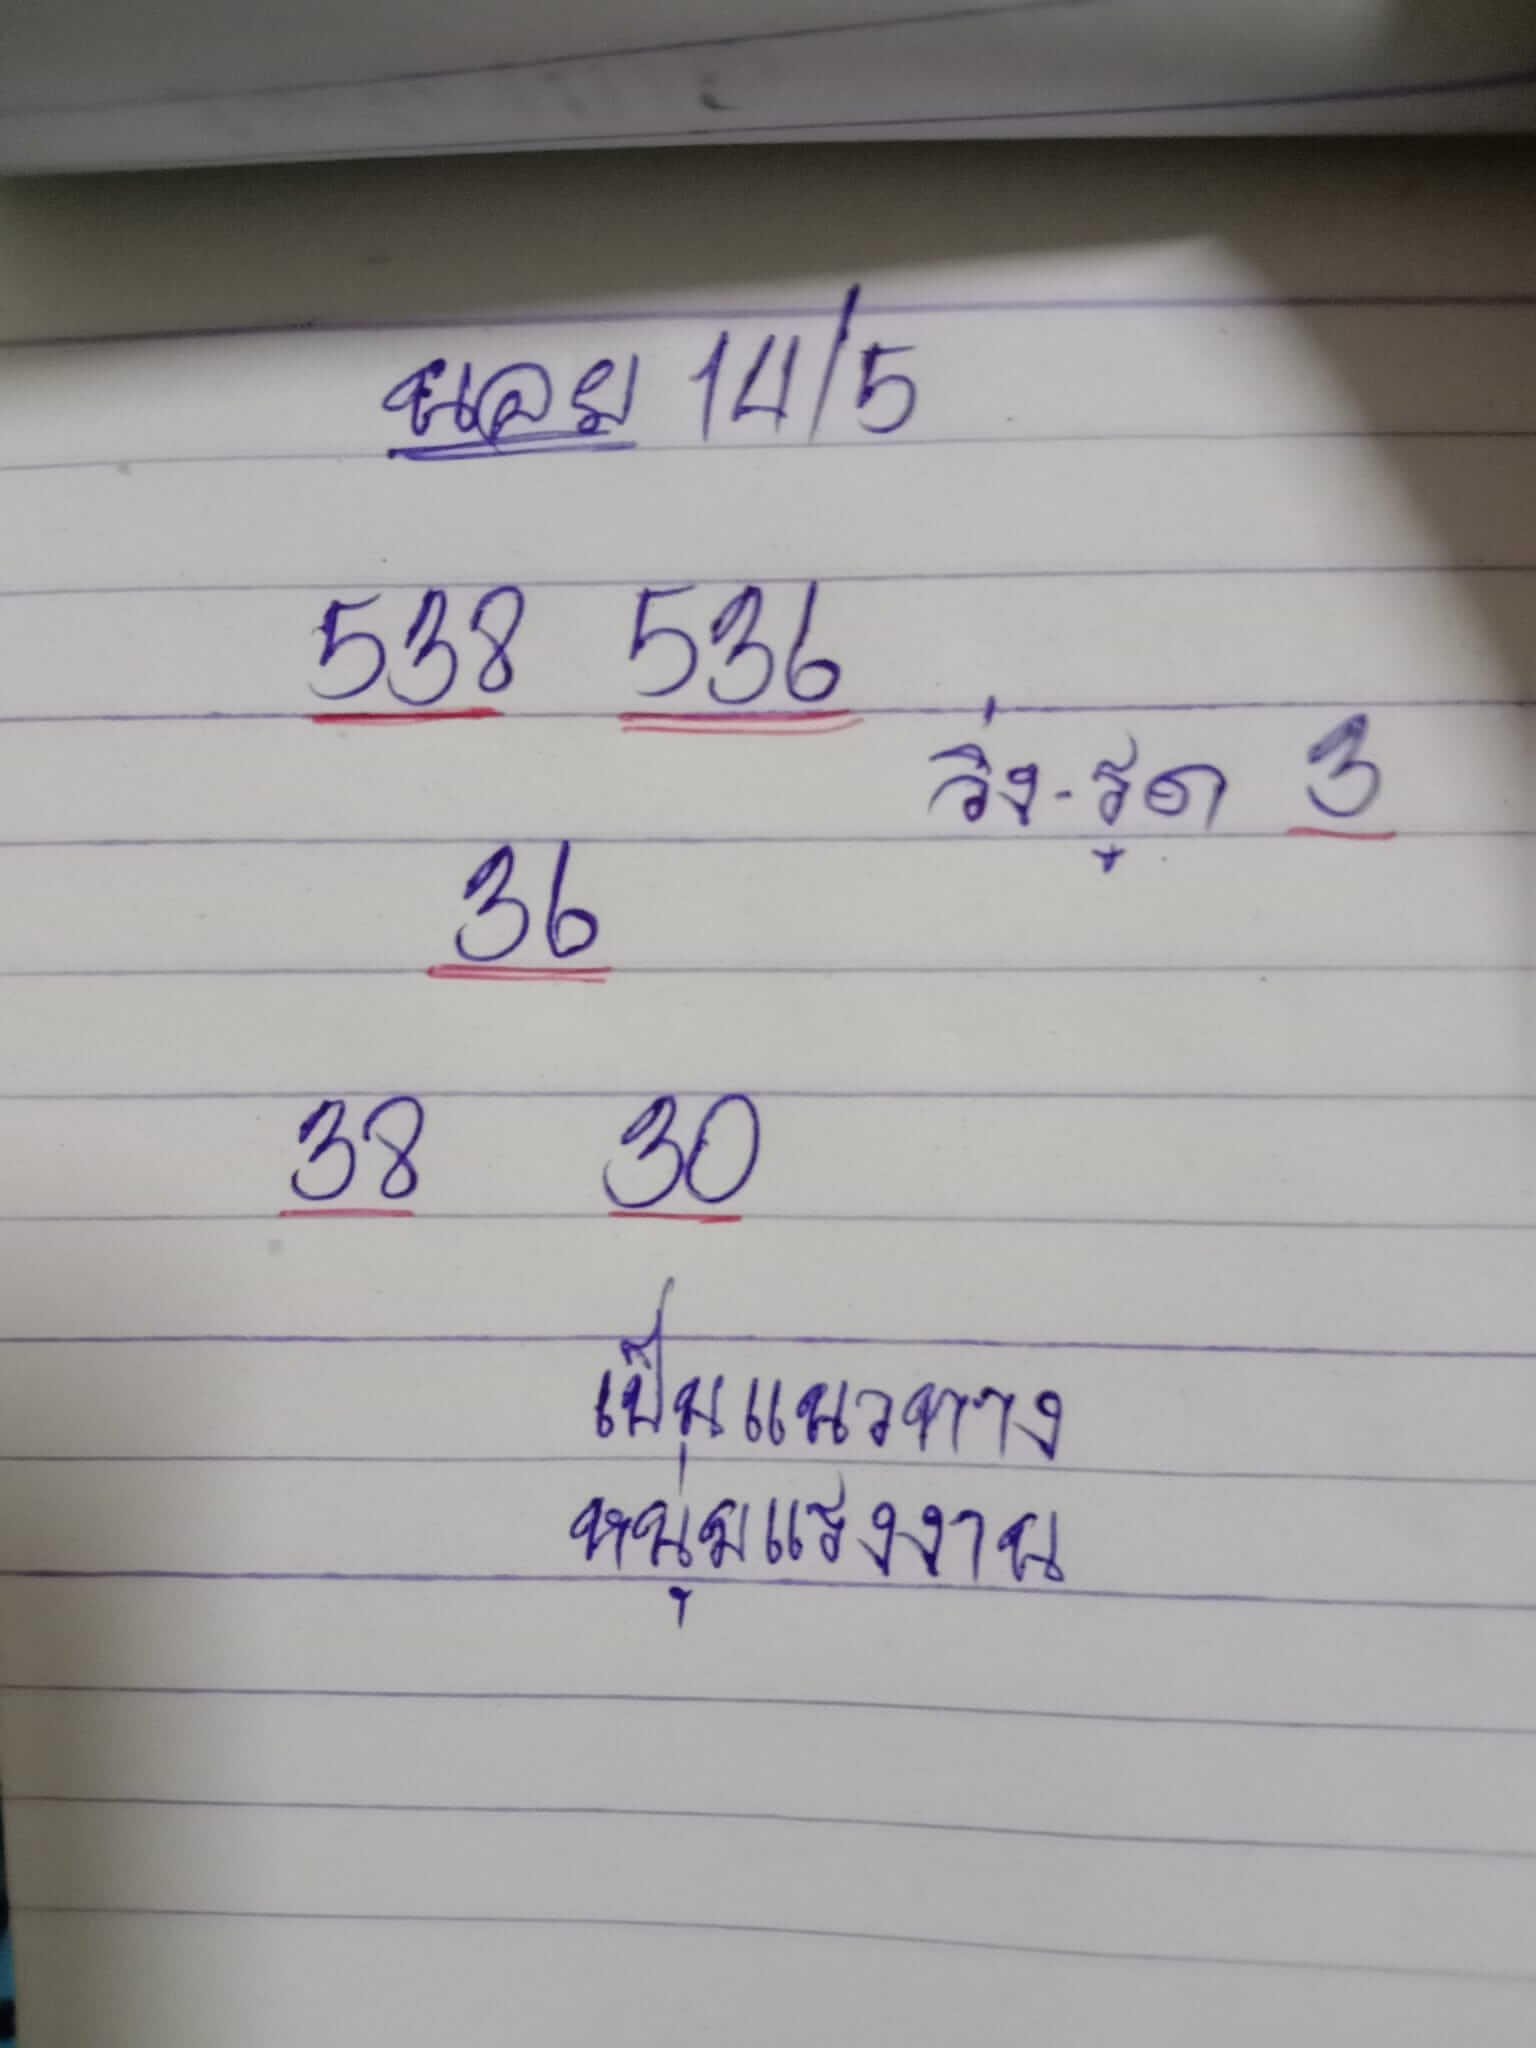 ฮานอย 14/5
538 536
วิ่ง-รูด 3
36
38 30
เป็นแนวทาง
หนุ่มแรงงาน